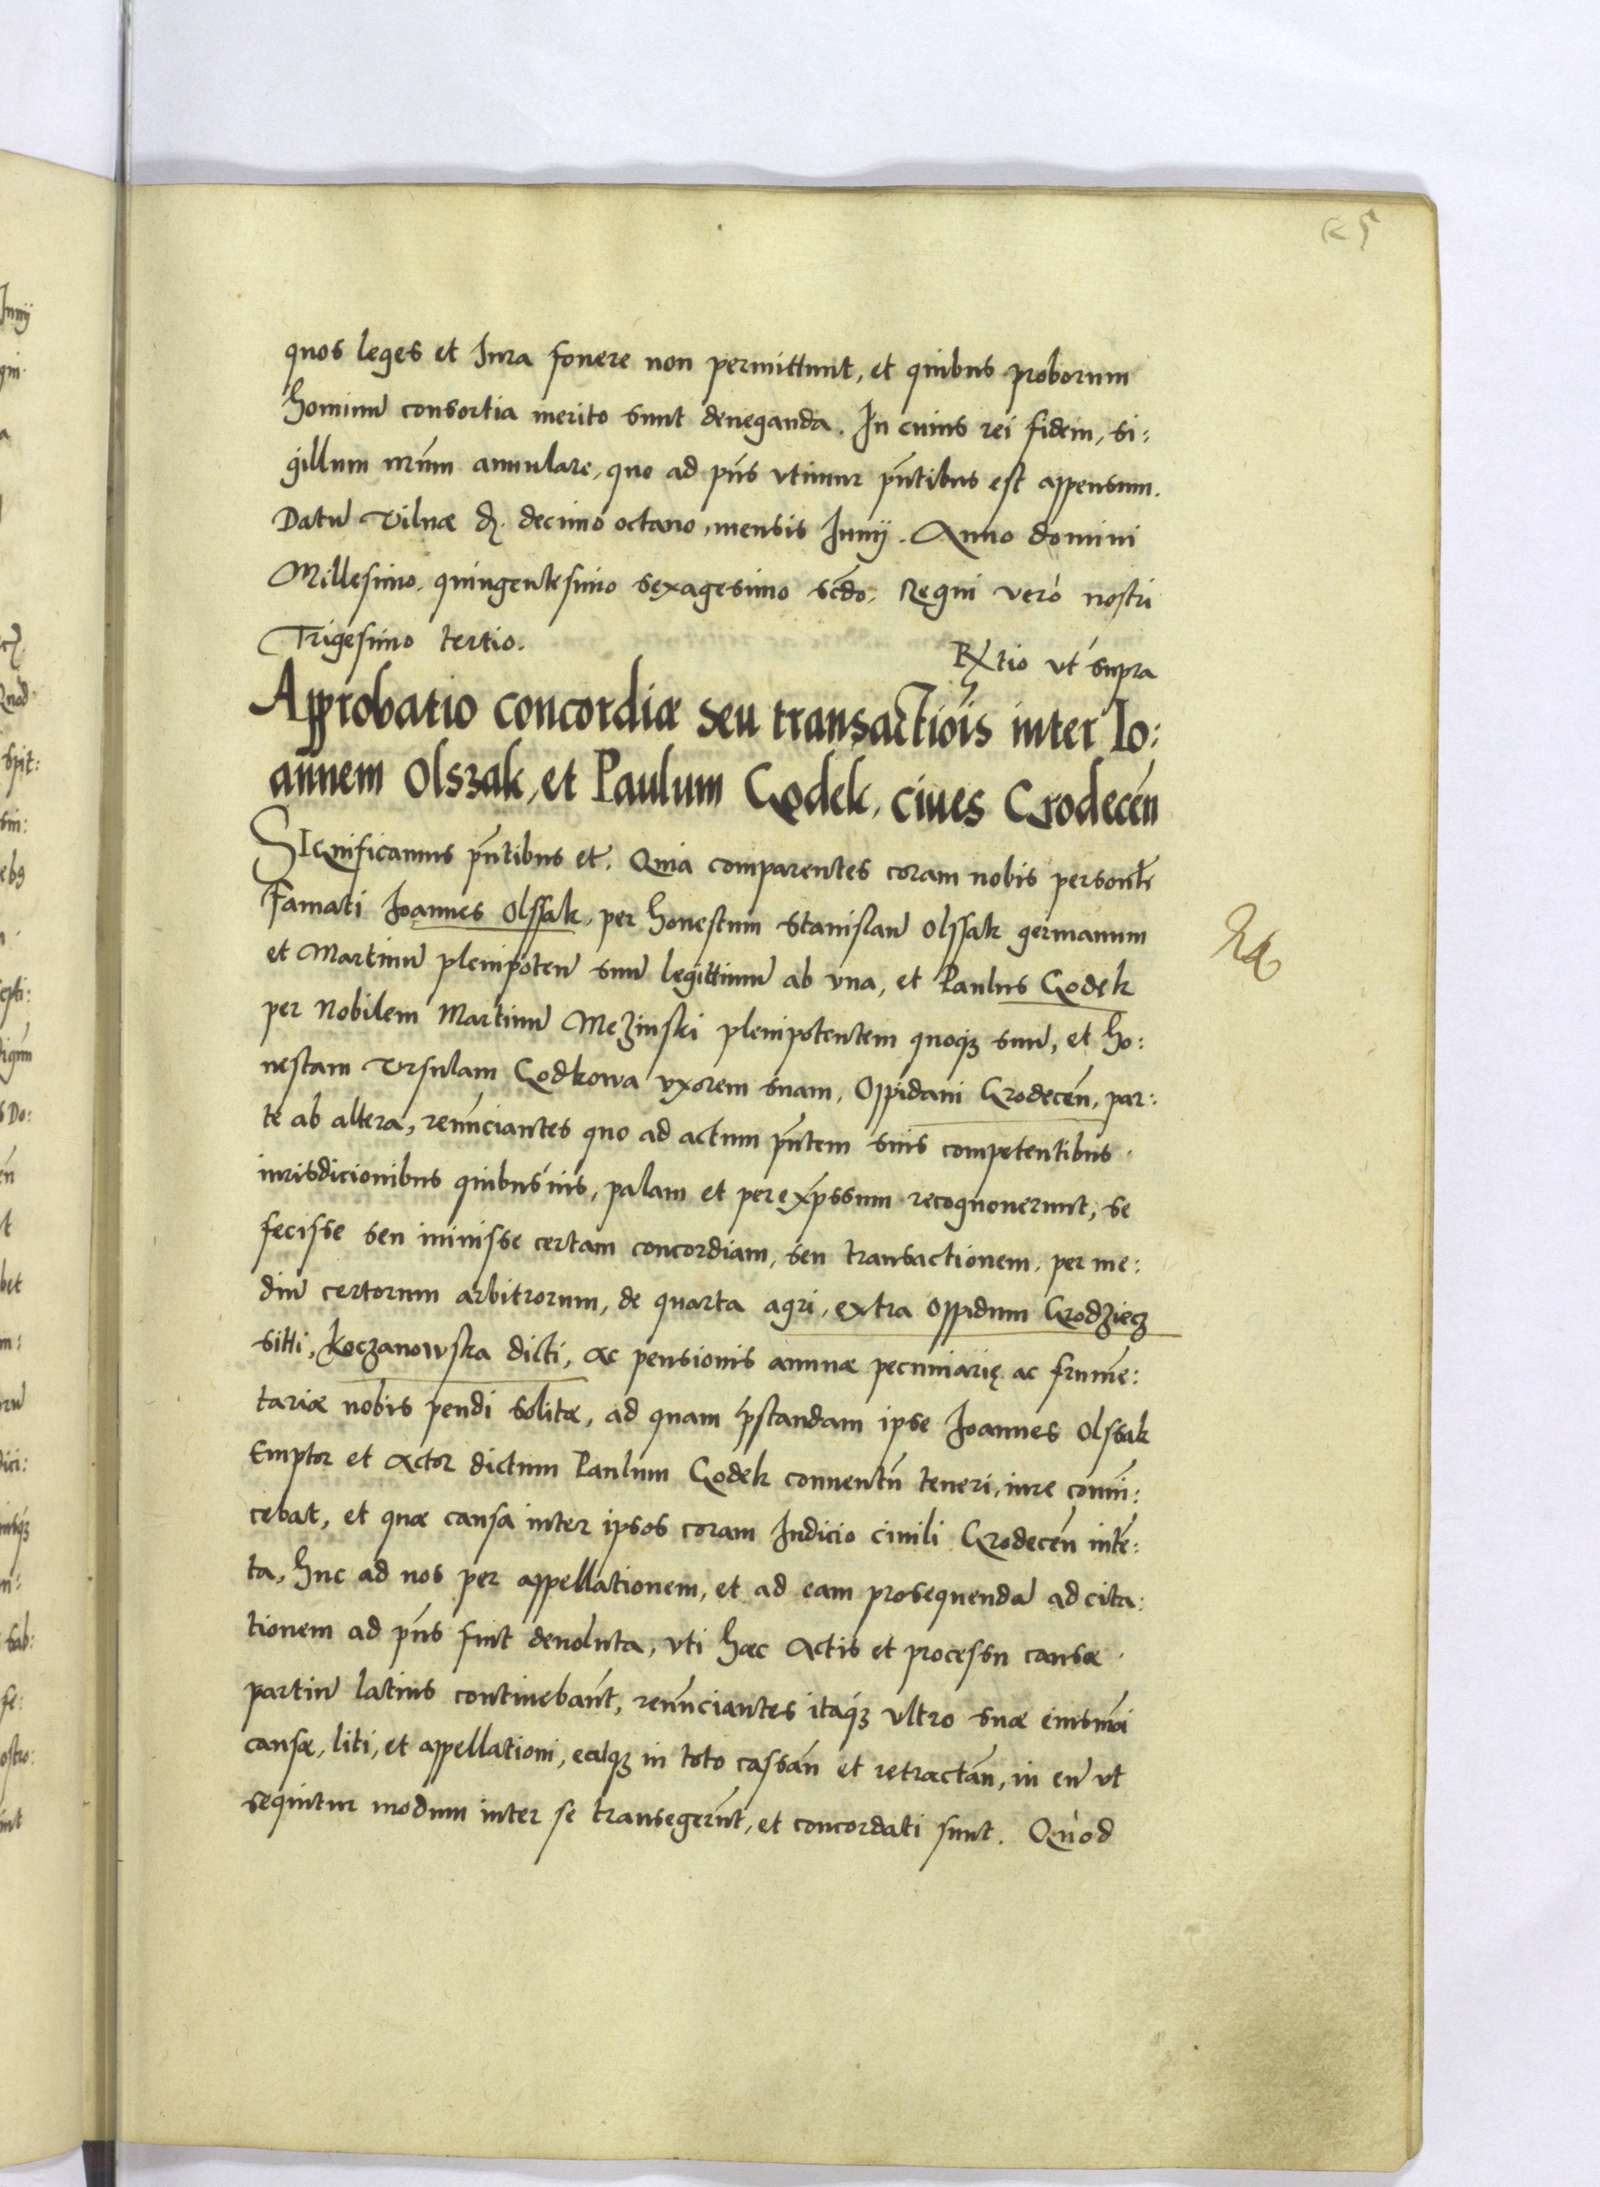 quos leges et Iura fouere non permittunt, et quibus proborum
hominũ consortia merito sunt deneganda. In cuius rei fidem, si:
gillum nrũm annulare, quo ad pñs vtimur pñtibus est appensum.
Datũ Vilnæ d. decimo octauo, mensis Iunij. Anno domini
Millesimo quingentesimo sexagesimo scdo. Regni verò nostri
Trigesimo tertio.
Rtio vt supra
Approbatio concordiæ seu transactiõis inter Io:
annem Olszak, et Paulum Godek, ciues Grodecen̄
SIGnificamus pñtibus et. Quia comparentes coram nobis personlr
Famati Ioannes Olssak, per honestum Stanislaũ Olssak germanum
et Martinũ plenipoteñ suũ legittimũ ab vna, et Paulus Godek
per Nobilem Martinũ Mezinski plenipotentem quoqȝ suũ, et ho:
nestam Vrsulam Godkowa vxorem suam, Oppidani Grodeceñ, par:
te ab altera, renũciantes quo ad actum pñtem suis competentibus
iurisdicionibus quibusuis, palam et per expssum recognouerunt, se
fecisse seu iniuisse certam concordiam, seu transactionem, per me:
diũ certorum arbitrorum, de quarta agri, extra oppidum Grodziecz
sitti, Koczanowska dicti, ac pensionis annuæ pecuniarię ac frumẽ:
tariæ nobis pendi solitæ, ad quam pstandam ipse Ioannes Olssak
Emptor et Actor dictum Paulum Godek conuentũ teneri, iure conui:
cebat, et quæ causa inter ipsos coram Iudicio ciuili Grodeceñ intẽ:
ta, huc ad nos per appellationem, et ad eam prosequendã ad cita:
tionem ad pñs fuit deuoluta, vti hæc Actis et processu causæ
partiũ latius continebant, renũciantes itaqȝ vltro suæ eiusmõi
causæ, liti, et appellationi, eaqȝ in toto cassañ et retractañ, in eũ vt
sequitur modum inter se transegerũt, et concordati sunt. Quòd